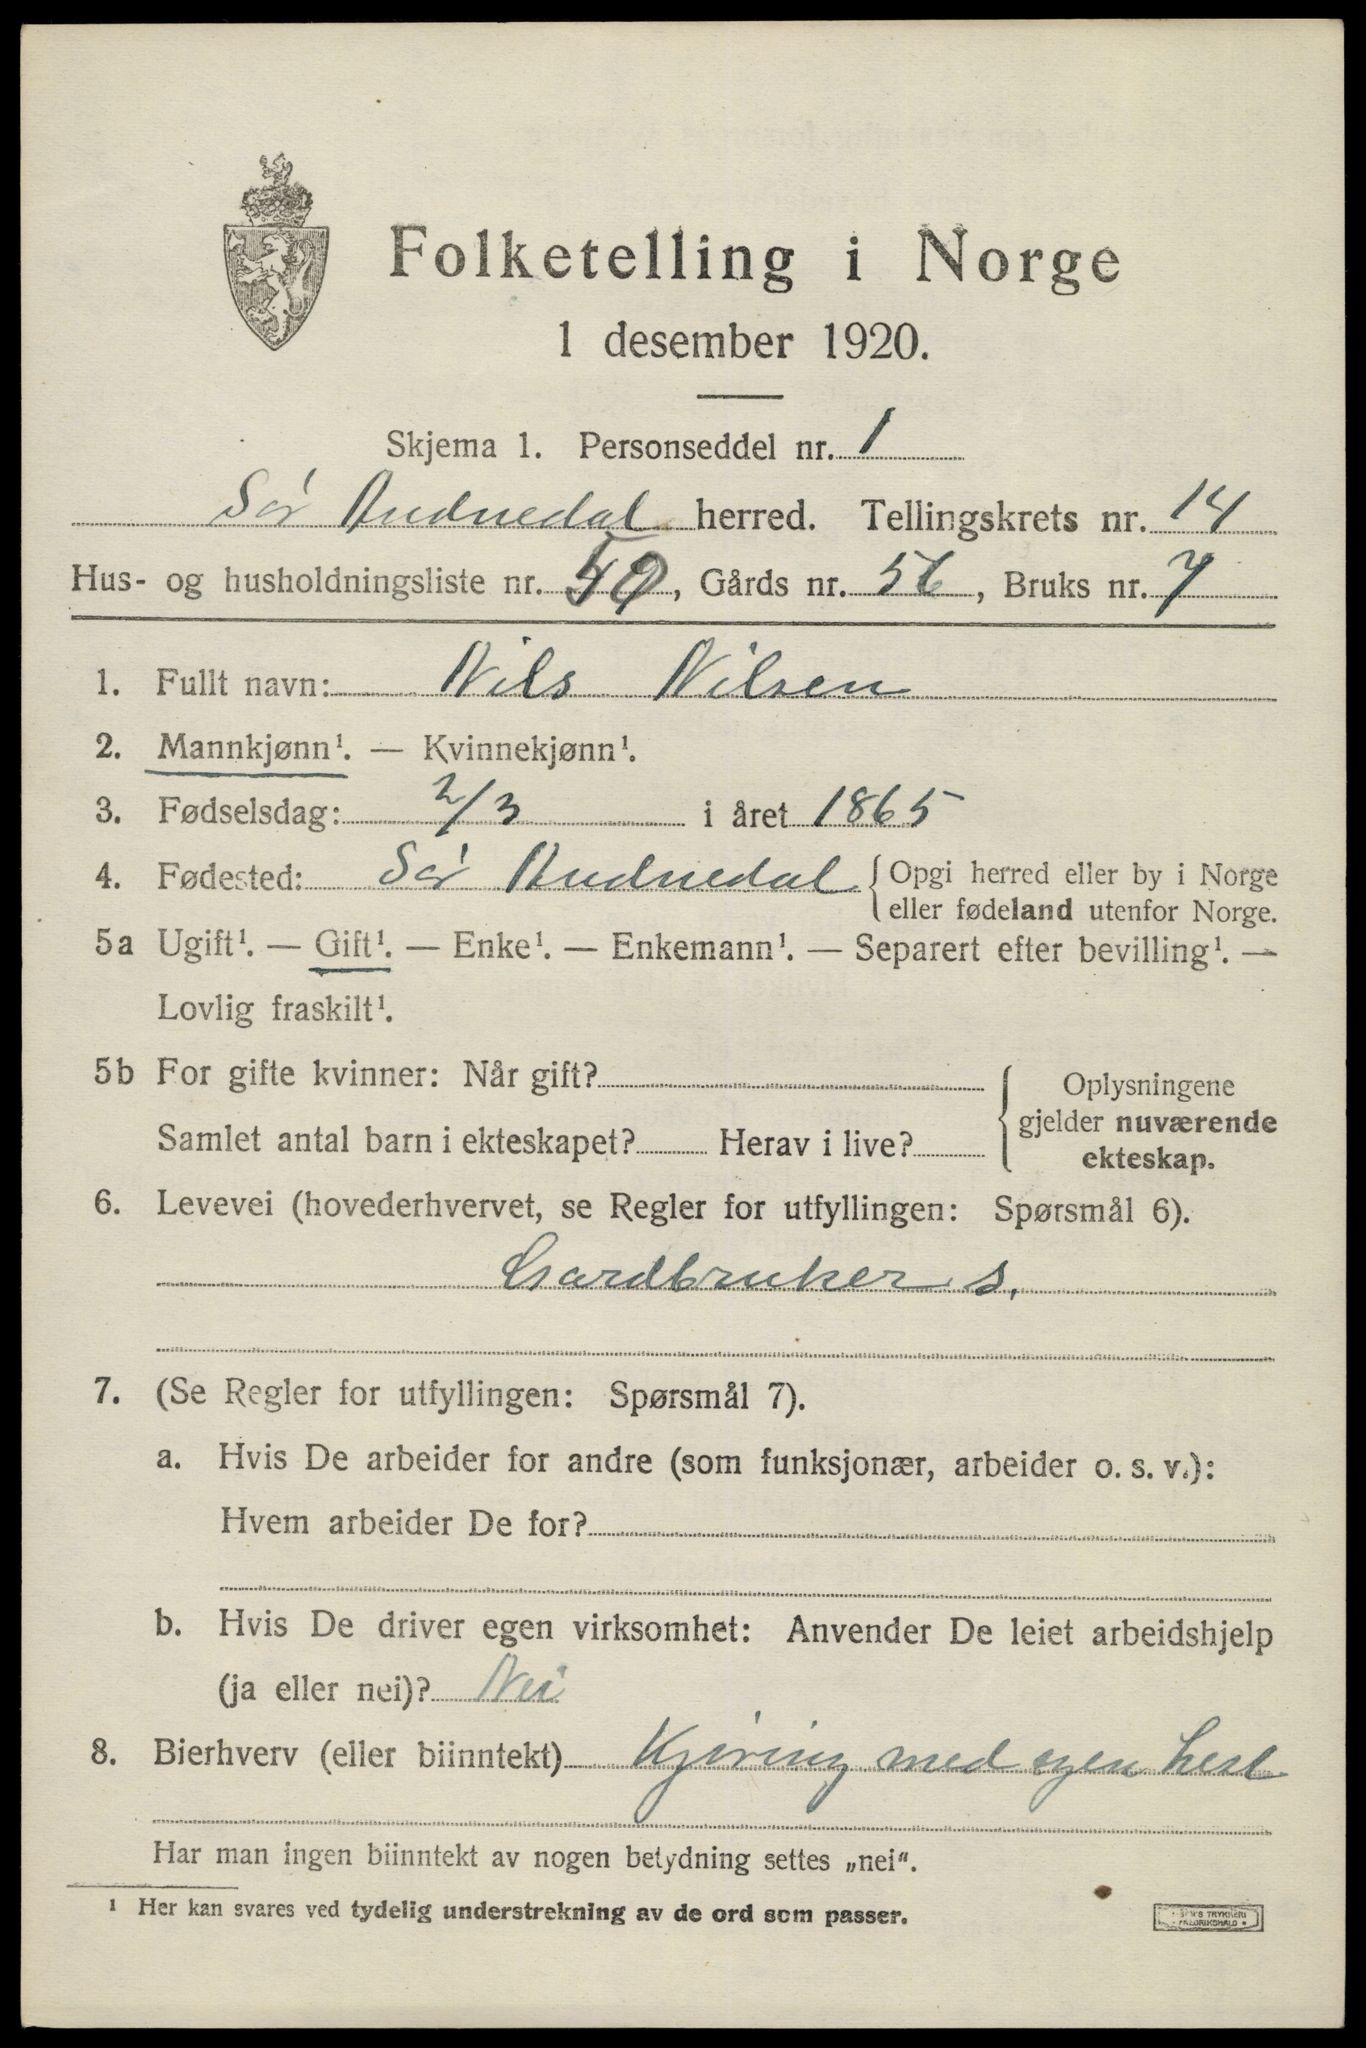 Folketelling i Norge
1 desember 1920.
Skjema 1. Personseddel nr. 1
Sör Audnedal herred. Tellingskrets nr. 14
Hus- og husholdningsliste nr. 59, Gårds nr. 56, Bruks nr. 7
1. Fullt navn: Nils Nilsen
2. Mannkjønn¹. — Kvinnekjønn¹.
3. Fødselsdag: 2/3 i året 1865
4. Fødested: Sör Audnedal { Opgi herred eller by i Norge
eller fødeland utenfor Norge.
5a Ugift¹. — Gift¹. — Enke¹. — Enkemann¹. — Separert efter bevilling¹. —
Lovlig fraskilt¹.
5b For gifte kvinner: Når gift?
Samlet antal barn i ekteskapet? Herav i live?
Oplysningene
gjelder nuværende
ekteskap.
6. Levevei (hovederhvervet, se Regler for utfyllingen: Spørsmål 6).
Gardbruker s.
7. (Se Regler for utfyllingen: Spørsmål 7).
a. Hvis De arbeider for andre (som funksjonær, arbeider o. s. v.):
Hvem arbeider De for?
b. Hvis De driver egen virksomhet: Anvender De leiet arbeidshjelp
(ja eller nei)? Nei
8. Bierhverv (eller biinntekt) Kjöring med egen hest
Har man ingen biinntekt av nogen betydning settes „nei“.
¹ Her kan svares ved tydelig understrekning av de ord som passer.
TRYKKERI
FREDRIKSHALD